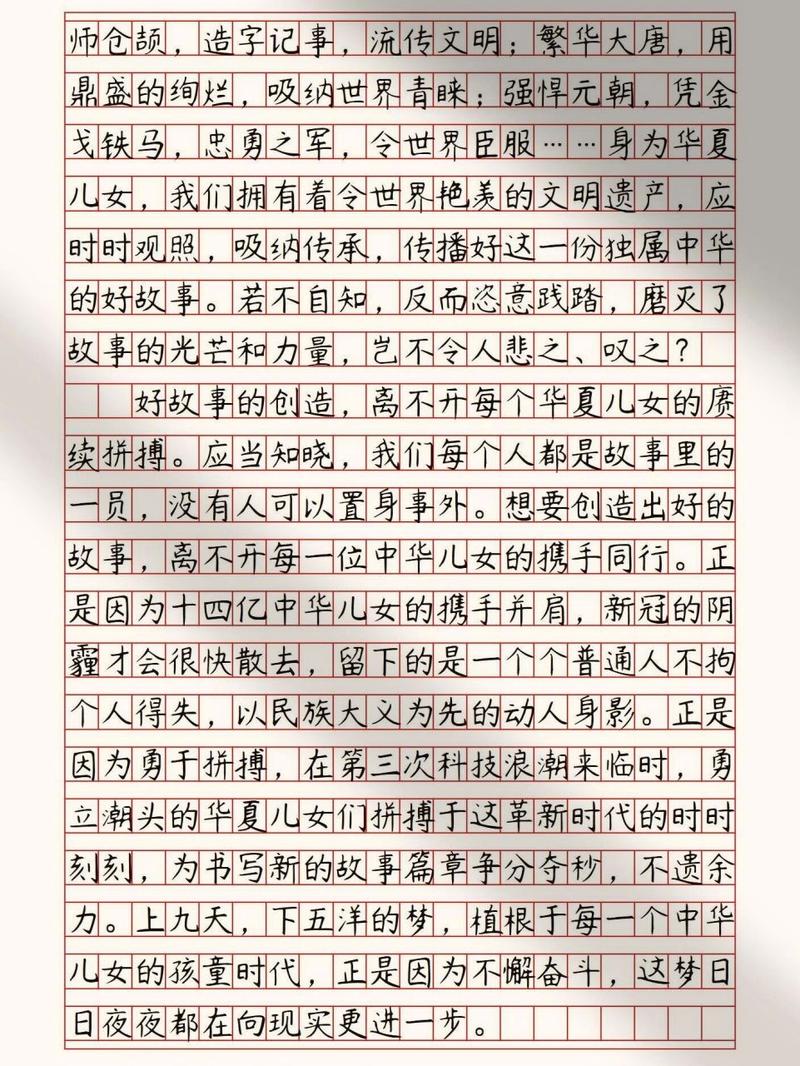 师仓颉，造字记事，流传文明；繁华大唐，用
鼎盛的绚烂，吸纳世界青睐；强悍元朝，凭金
戈铁马，忠勇之军，令世界臣服……身为华夏
儿女，我们拥有着令世界艳羡的文明遗产，应
时时观照，吸纳传承，传播好这一份独属中华
的好故事。若不自知，反而恣意践踏，磨灭了
故事的光芒和力量，岂不令人悲之、叹之？
好故事的创造，离不开每个华夏儿女的赓
续拼搏。应当知晓，我们每个人都是故事里的
一员，没有人可以置身事外。想要创造出好的
故事，离不开每一位中华儿女的携手同行。正
是因为十四亿中华儿女的携手并肩，新冠的阴
霾才会很快散去，留下的是一个个普通人不拘
个人得失，以民族大义为先的动人身影。正是
因为勇于拼搏，在第三次科技浪潮来临时，勇
立潮头的华夏儿女们拼搏于这革新时代的时时
刻刻，为书写新的故事篇章争分夺秒，不遗余
力。上九天，下五洋的梦，植根于每一个中华
儿女的孩童时代，正是因为不懈奋斗，这梦日
日夜夜都在向现实更进一步。